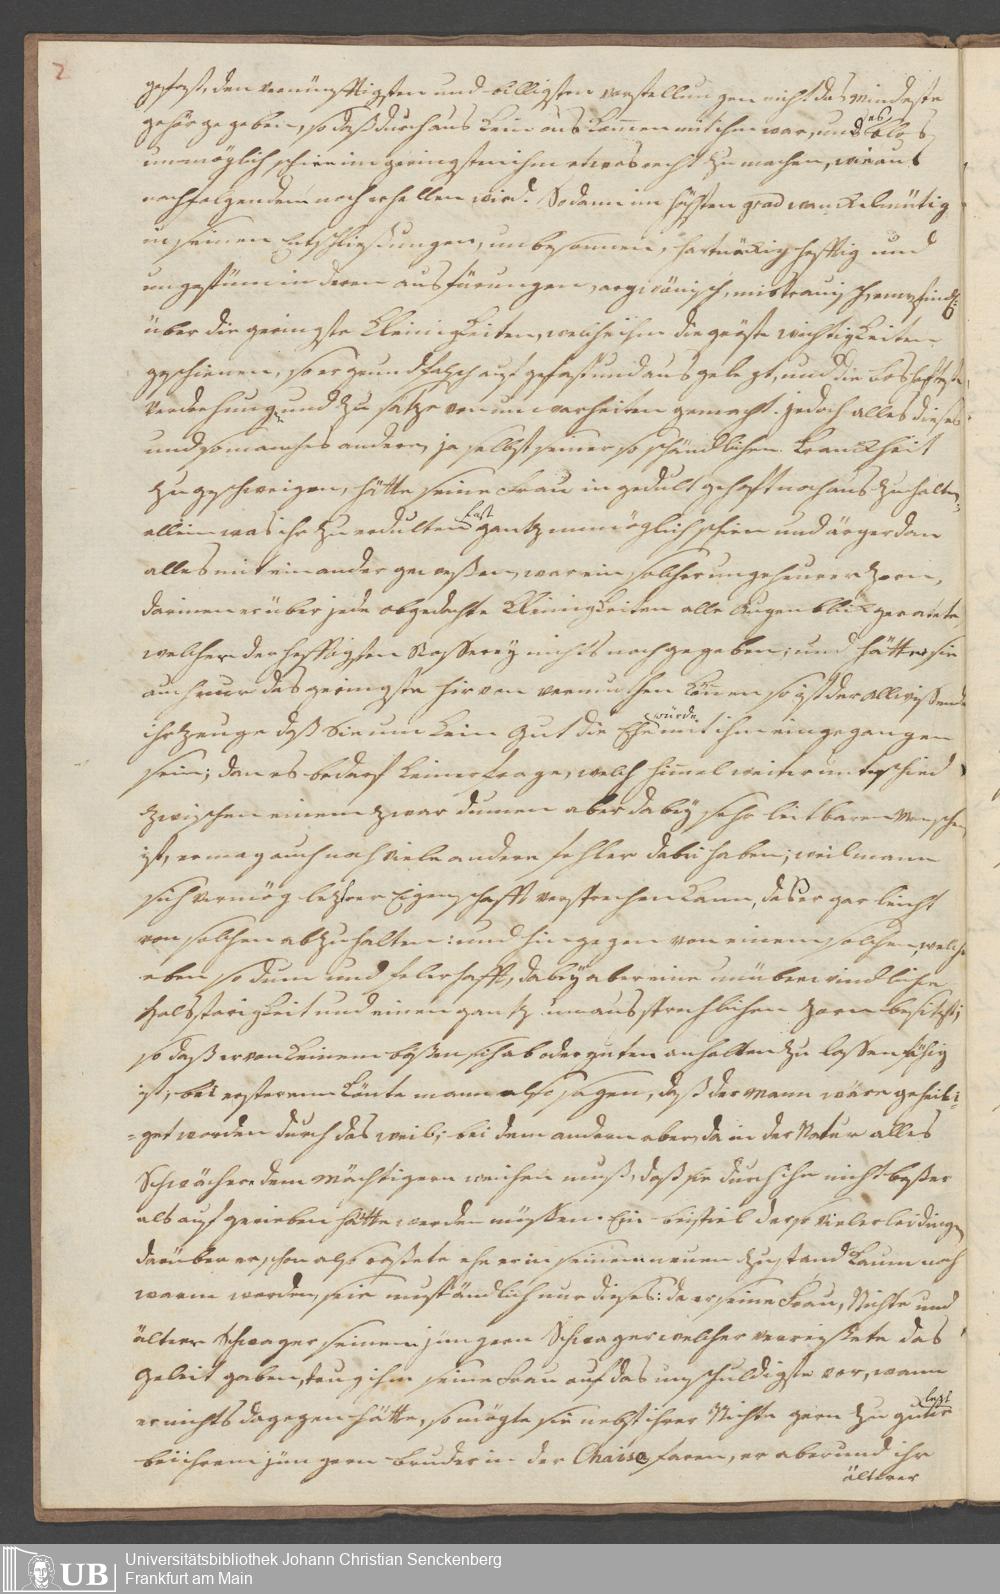 2
gefast, den vernünfftigsten und billigsten vorstellungen nicht das mindeste
gehör gegeben, so daß durchaus kein auskommen mit ihm war, und es blos
unmöglich schien im geringsten ihm etwas recht zu machen, wie aus
nachfolgendem noch erhellen wird. Sodann im höchsten grad wanckelmütig
in seinen Entschließungen, unbesonnen, hartnäckig hefftig und
ungestüm in deren ausfürungen, argwönisch, mistrauisch, empfindl:
über die geringste Kleinigkeiten, welche ihm die gröste wichtigkeiten
geschienen, so er grundfalsch aufgefast und ausgelegt, und die boshaffteste
verdrehungen und zusätze von unwarheiten gemacht. jedoch alles dieses
und so manches andere, ja selbst seiner so schändlichen Kranckheit
zu geschweigen, hätte seine Frau in gedult gehoft noch auszuhalten,
allein was ihr zu erdulten fast gantz unmöglich schien und ärger dan
alles mit einander gewesen, war ein solcher ungeheurer Zorn,
darinen er über jede obgedachte Kleinigkeiten alle Augenblick geraten,
welcher der hefftigsten Raserey nichts nachgegeben; und hätte sie
auch nur das geringste hirvon vermuthen können so ist der Allwissende
ihr Zeuge daß Sie um kein Gut die Ehe mit ihm würde eingegangen
sein; dan es bedarf keiner frage, welch himmelweiter unterschied
zwischen einem zwar dummen aber dabey sehr leitbaren Menschen
ist, er mag auch noch viele andere fehler dabei haben; weil mann
sich vermög letzter Eigenschafft versprechen kann, das er gar leicht
von solchen abzuhalten: und hingegen von einem solchen, welcher
eben so dum und felerhafft, dabey aber eine unüberwindliche
Halsstarigkeit und einen gantz unaussprechlichen Zorn besitzt;
so daß er von keinem bösen sich ab oder zu guten anhalten zu lassen fähig
ist, bei ersterem könte mann also sagen, daß der Mann wäre geheili-
get worden durch das weib; bei dem andern aber, da in der Natur alles
Schwächere dem Mächtigern weichen muß, daß sie durch ihn nicht besser
als aufgerieben hätte werden müssen. Ein beispiel der so vielerlei dingen
darüber er schon also rasete ehe er in seinem neuen zustand kaum noch
warm worden, seie umständlich nur dieses: da er seine Frau, Nichte und
älterer Schwager seinem jüngern Schwager welcher verreißete das
Geleit gaben, trug ihm seine Frau auf das unschuldigste vor, wann
er nichts dagegen hätte, so mögte sie nebst ihrer Nichte gern zu guter letzt
bei ihrem jüngern bruder in der Chaise faren, er aber und ihr
älterer
UB
Universitätsbibliothek Johann Christian Senckenberg
Frankfurt am Main